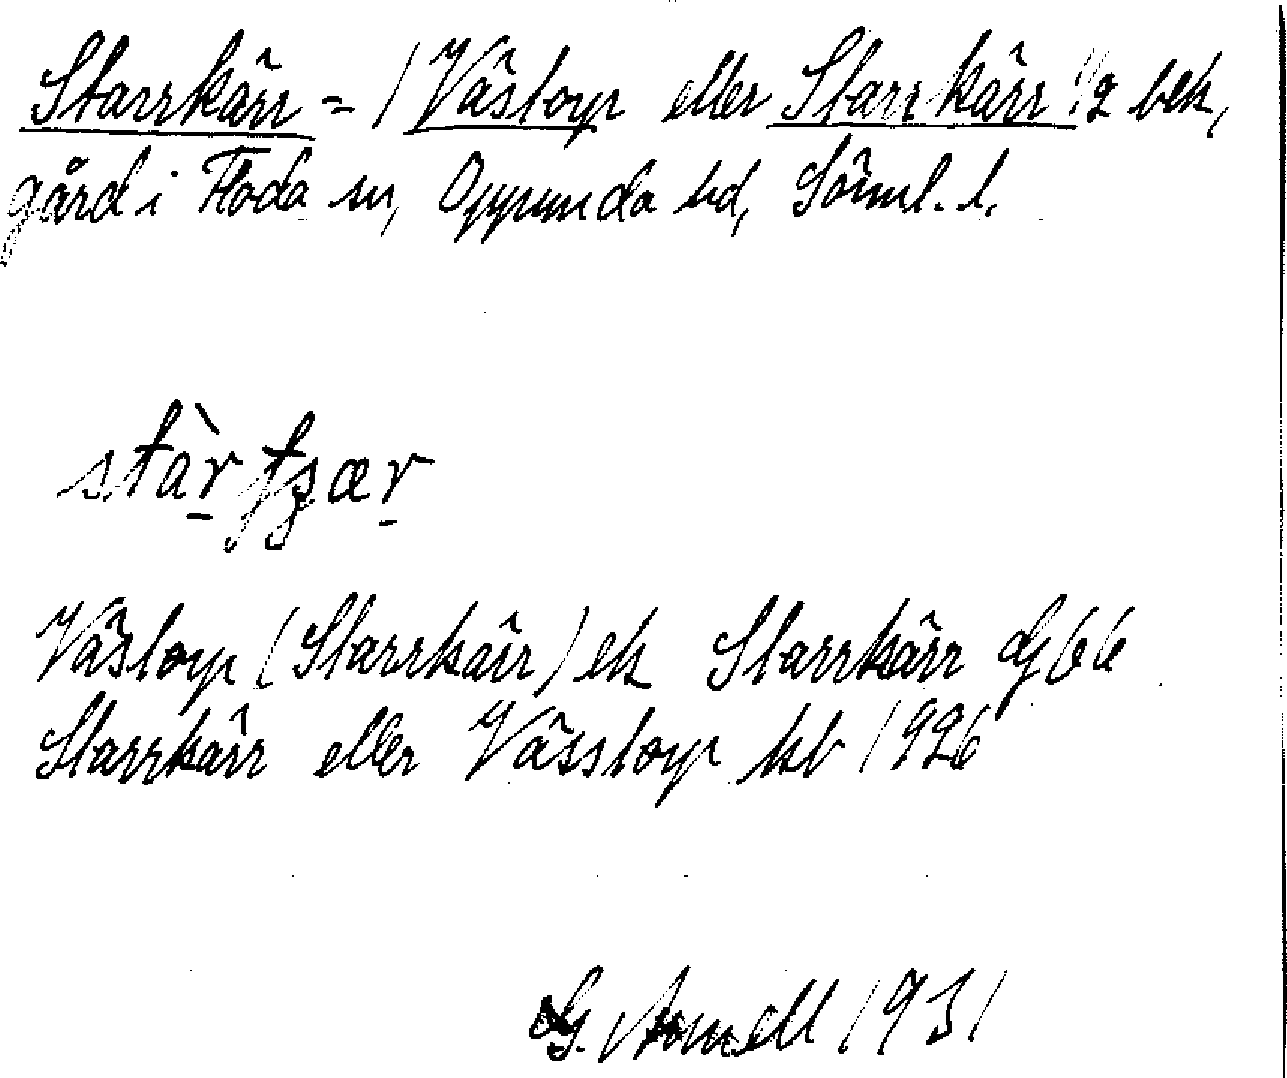 Starrkärr = 1 Västorp eller Starrkärr 1/2 bek,
gård i Floda sn, Oppunda hd, Söml. l.
stàr̠ tʂær̠
Västorp (Starrkärr) ek Starrkärr Gg 66
Starrkärr eller Västtorp kb 1926
G. 1931